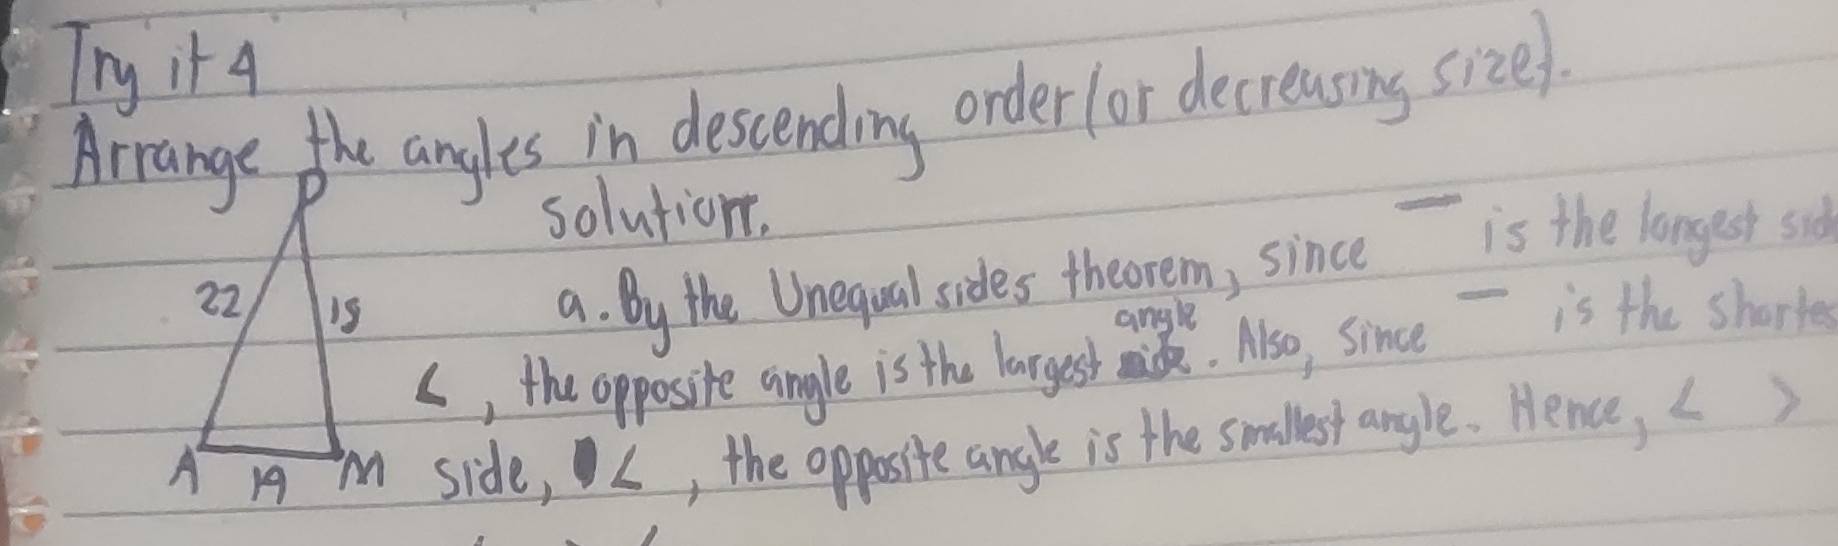 Try it 4
Arrange the angles in descending order (or decreasing size).
P
solution.
22
18
a. By the Unequal sides theorem, since — is the longest sid
∠ , the opposite angle is the largest angle. Also, since — is the shortes
A 14 M side, ∠ , the opposite angle is the smallest angle. Hence, ∠ >